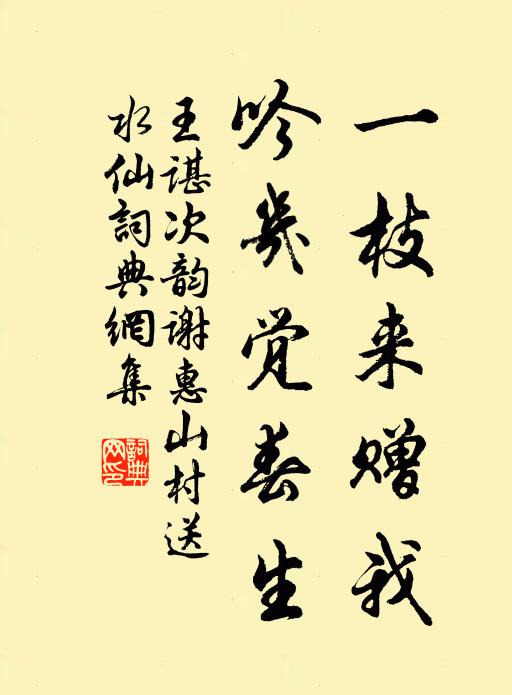 一枝来赠我
吟几觉春生
王谌次韵谢惠山村送
水仙詞典網集
詞典網印